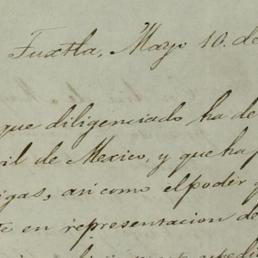 Tuxtla, Mayo 10. de
que diligenciado ha de
il de Mexico, y que ha p
igas, asi como el poder
te en representacion de